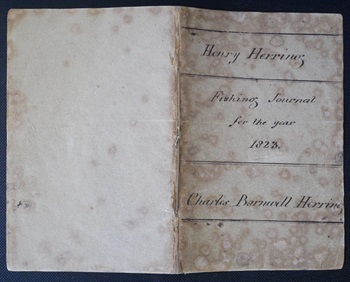 Henry Herring
Fishing Journal
for the year
1823.
Charles Barnwell Herring